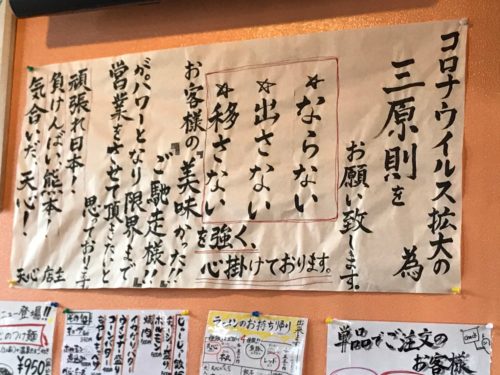 コロナウイルス拡大の為
三原則を
お願い致します。
☆ならない
☆出さない
☆移さない
を強く、
心掛けております。
お客様の『美味かった!!』
『ご馳走様!!』
がパワーとなり限界まで
営業をさせて頂きたいと
思っております
頑張れ日本!
負けんばい熊本!
気合いだ、天心!
天心 店主
ニュー登場!!
つけ麺
¥950
ラーメンのお持ち帰り
単品でご注文の
お客様